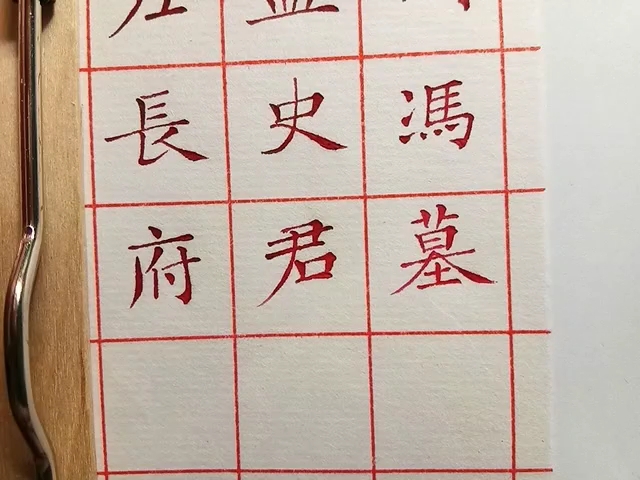 長史馮
府君墓